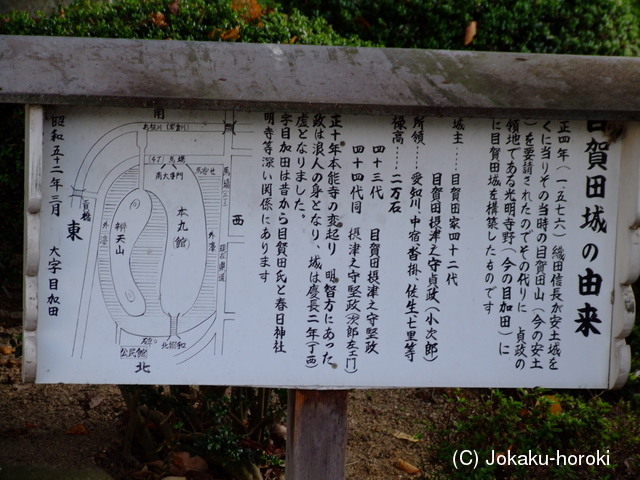 目賀田城の由来
正四年(一五七六)織田信長が安土城を
くに当りその当時の目賀田山(今の安土
)を要請されたのでその代りに 貞政の
領地である光明寺野(今の目加田)に
に目賀田城を構築したものです
城主…目賀田家四十二代
目賀田摂津之守貞政(小次郎)
所領…愛知川、中宿、沓掛、佐生、七里等
禄高…二万石
四十三代 目賀田摂津之守堅政
四十四代同 摂津之守堅政(次郎左ェ門)
正十年本能寺の変起り 明智方にあった
政は浪人の身となり、城は慶長二年(丁酉)
虚となりました。
字目加田は昔から目賀田氏と春日神社
明寺等深い関係にあります
昭和五十二年三月 大字目加田
南
東
西
北
本丸(館)
弁天山
南大手門
馬場
外濠
外濠
公民館
(C) Jokaku-horoki